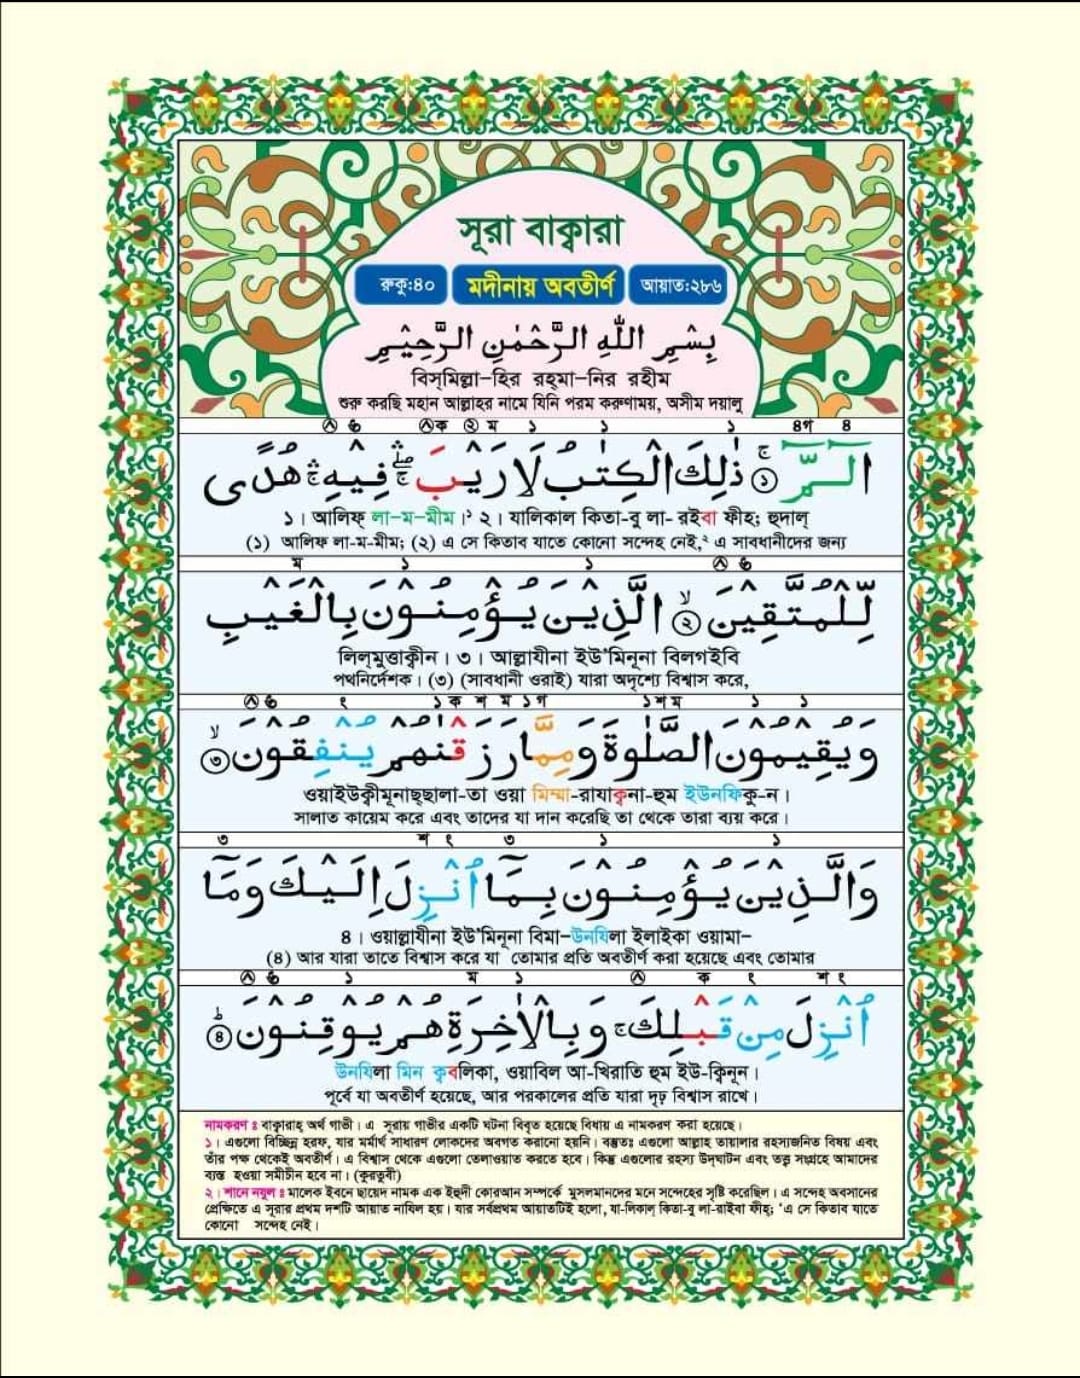 সূরা বাক্বারা
রুকু:৪০ মদীনায় অবতীর্ণ আয়াত:২৮৬
بِسْمِ اللّٰهِ الرَّحْمٰنِ الرَّحِيْمِ
বিস্‌মিল্লা-হির রহ্‌মা-নির রহীম
শুরু করছি মহান আল্লাহর নামে যিনি পরম করুণাময়, অসীম দয়ালু
الٓمّٓ ۚ ۝১ ذٰلِكَ الْكِتٰبُ لَا رَيْبَ ۛۖۚ فِيْهِ ۛۚ هُدًى
১। আলিফ্ লা-ম-মীম।১ ২। যালিকাল কিতা-বু লা- রইবা ফীহ; হুদাল্
(১) আলিফ লা-ম-মীম; (২) এ সে কিতাব যাতে কোনো সন্দেহ নেই,২ এ সাবধানীদের জন্য
لِّلْمُتَّقِيْنَ ۙ ۝২ الَّذِيْنَ يُؤْمِنُوْنَ بِالْغَيْبِ
লিল্‌মুত্তাক্বীন। ৩। আল্লাযীনা ইউ’মিনূনা বিলগইবি
পথনির্দেশক। (৩) (সাবধানী ওরাই) যারা অদৃশ্যে বিশ্বাস করে,
وَيُقِيْمُوْنَ الصَّلٰوةَ وَمِمَّا رَزَقْنٰهُمْ يُنْفِقُوْنَ ۙ ۝৩
ওয়াইউক্বীমূনাছ্‌ছালা-তা ওয়া মিম্মা-রাযাক্বনা-হুম ইউনফিকু-ন।
সালাত কায়েম করে এবং তাদের যা দান করেছি তা থেকে তারা ব্যয় করে।
وَالَّذِيْنَ يُؤْمِنُوْنَ بِمَآ اُنْزِلَ اِلَيْكَ وَمَآ
৪। ওয়াল্লাযীনা ইউ’মিনূনা বিমা-উনযিলা ইলাইকা ওয়ামা-
(৪) আর যারা তাতে বিশ্বাস করে যা তোমার প্রতি অবতীর্ণ করা হয়েছে এবং তোমার
اُنْزِلَ مِنْ قَبْلِكَ ۚ وَبِالْاٰخِرَةِ هُمْ يُوْقِنُوْنَ ؕ ۝৪
উনযিলা মিন ক্ববলিকা, ওয়াবিল আ-খিরাতি হুম ইউ-ক্বিনূন।
পূর্বে যা অবতীর্ণ হয়েছে, আর পরকালের প্রতি যারা দৃঢ় বিশ্বাস রাখে।
নামকরণ ঃ বাক্বারাহ্ অর্থ গাভী। এ সূরায় গাভীর একটি ঘটনা বিবৃত হয়েছে বিধায় এ নামকরণ করা হয়েছে।
১। এগুলো বিচ্ছিন্ন হরফ, যার মর্মার্থ সাধারণ লোকদের অবগত করানো হয়নি। বস্তুতঃ এগুলো আল্লাহ তায়ালার রহস্যজনিত বিষয় এবং
তাঁর পক্ষ থেকেই অবতীর্ণ। এ বিশ্বাস থেকে এগুলো তেলাওয়াত করতে হবে। কিন্তু এগুলোর রহস্য উদ্‌ঘাটন এবং তত্ত্ব সংগ্রহে আমাদের
ব্যস্ত হওয়া সমীচীন হবে না। (কুরতুবী)
২। শানে নযুল ঃ মালেক ইবনে ছায়েদ নামক এক ইহুদী কোরআন সম্পর্কে মুসলমানদের মনে সন্দেহের সৃষ্টি করেছিল। এ সন্দেহ অবসানের
প্রেক্ষিতে এ সূরার প্রথম দশটি আয়াত নাযিল হয়। যার সর্বপ্রথম আয়াতটিই হলো, যা-লিকাল্ কিতা-বু লা-রাইবা ফীহ্; ‘এ সে কিতাব যাতে
কোনো সন্দেহ নেই।